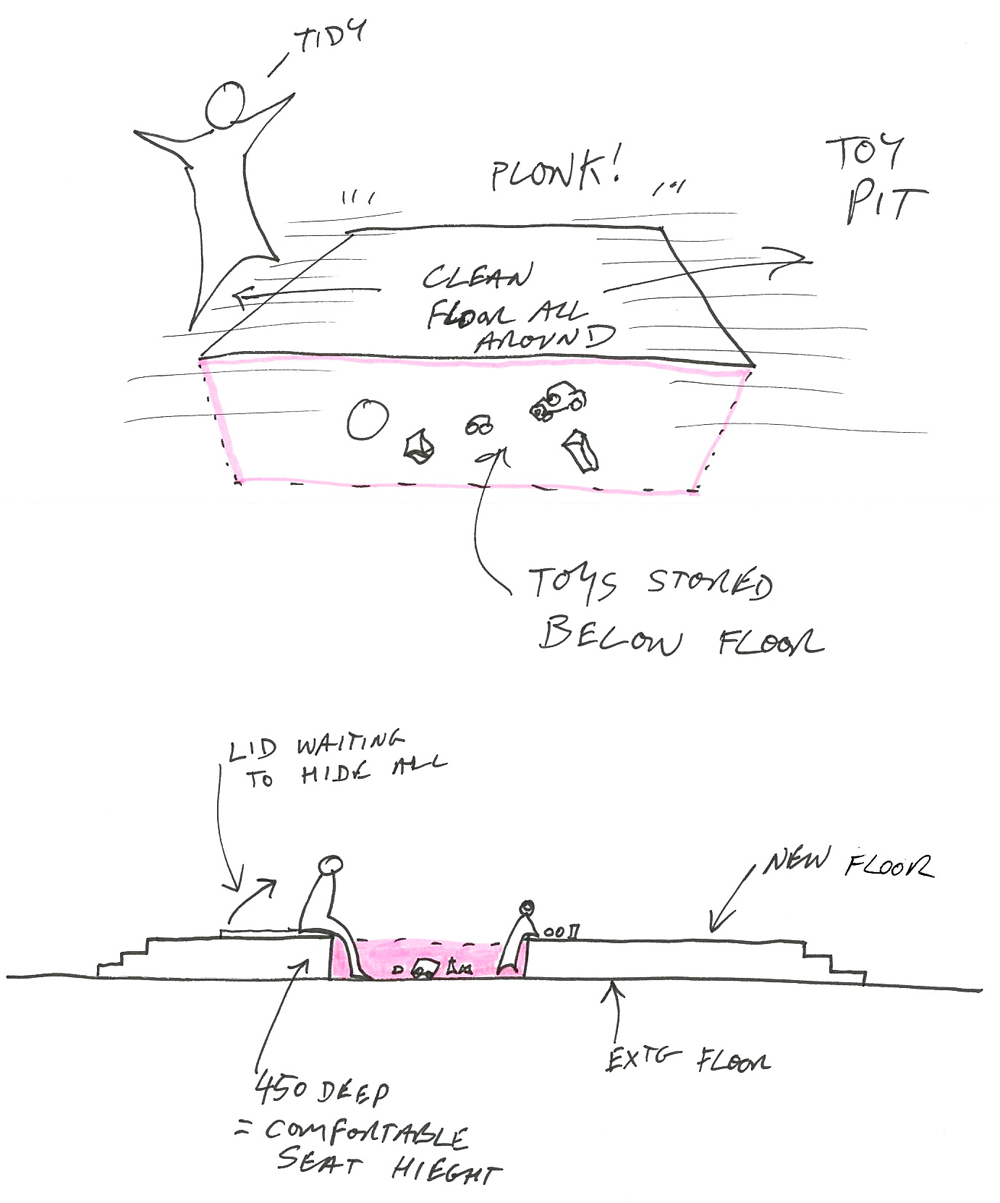 TIDY
PLONK!
TOY
PIT
CLEAN
FLOOR ALL
AROUND
TOYS STORED
BELOW FLOOR
LID WAITING
TO HIDE ALL
NEW FLOOR
EXTG FLOOR
450 DEEP
= COMFORTABLE
SEAT HIEGHT